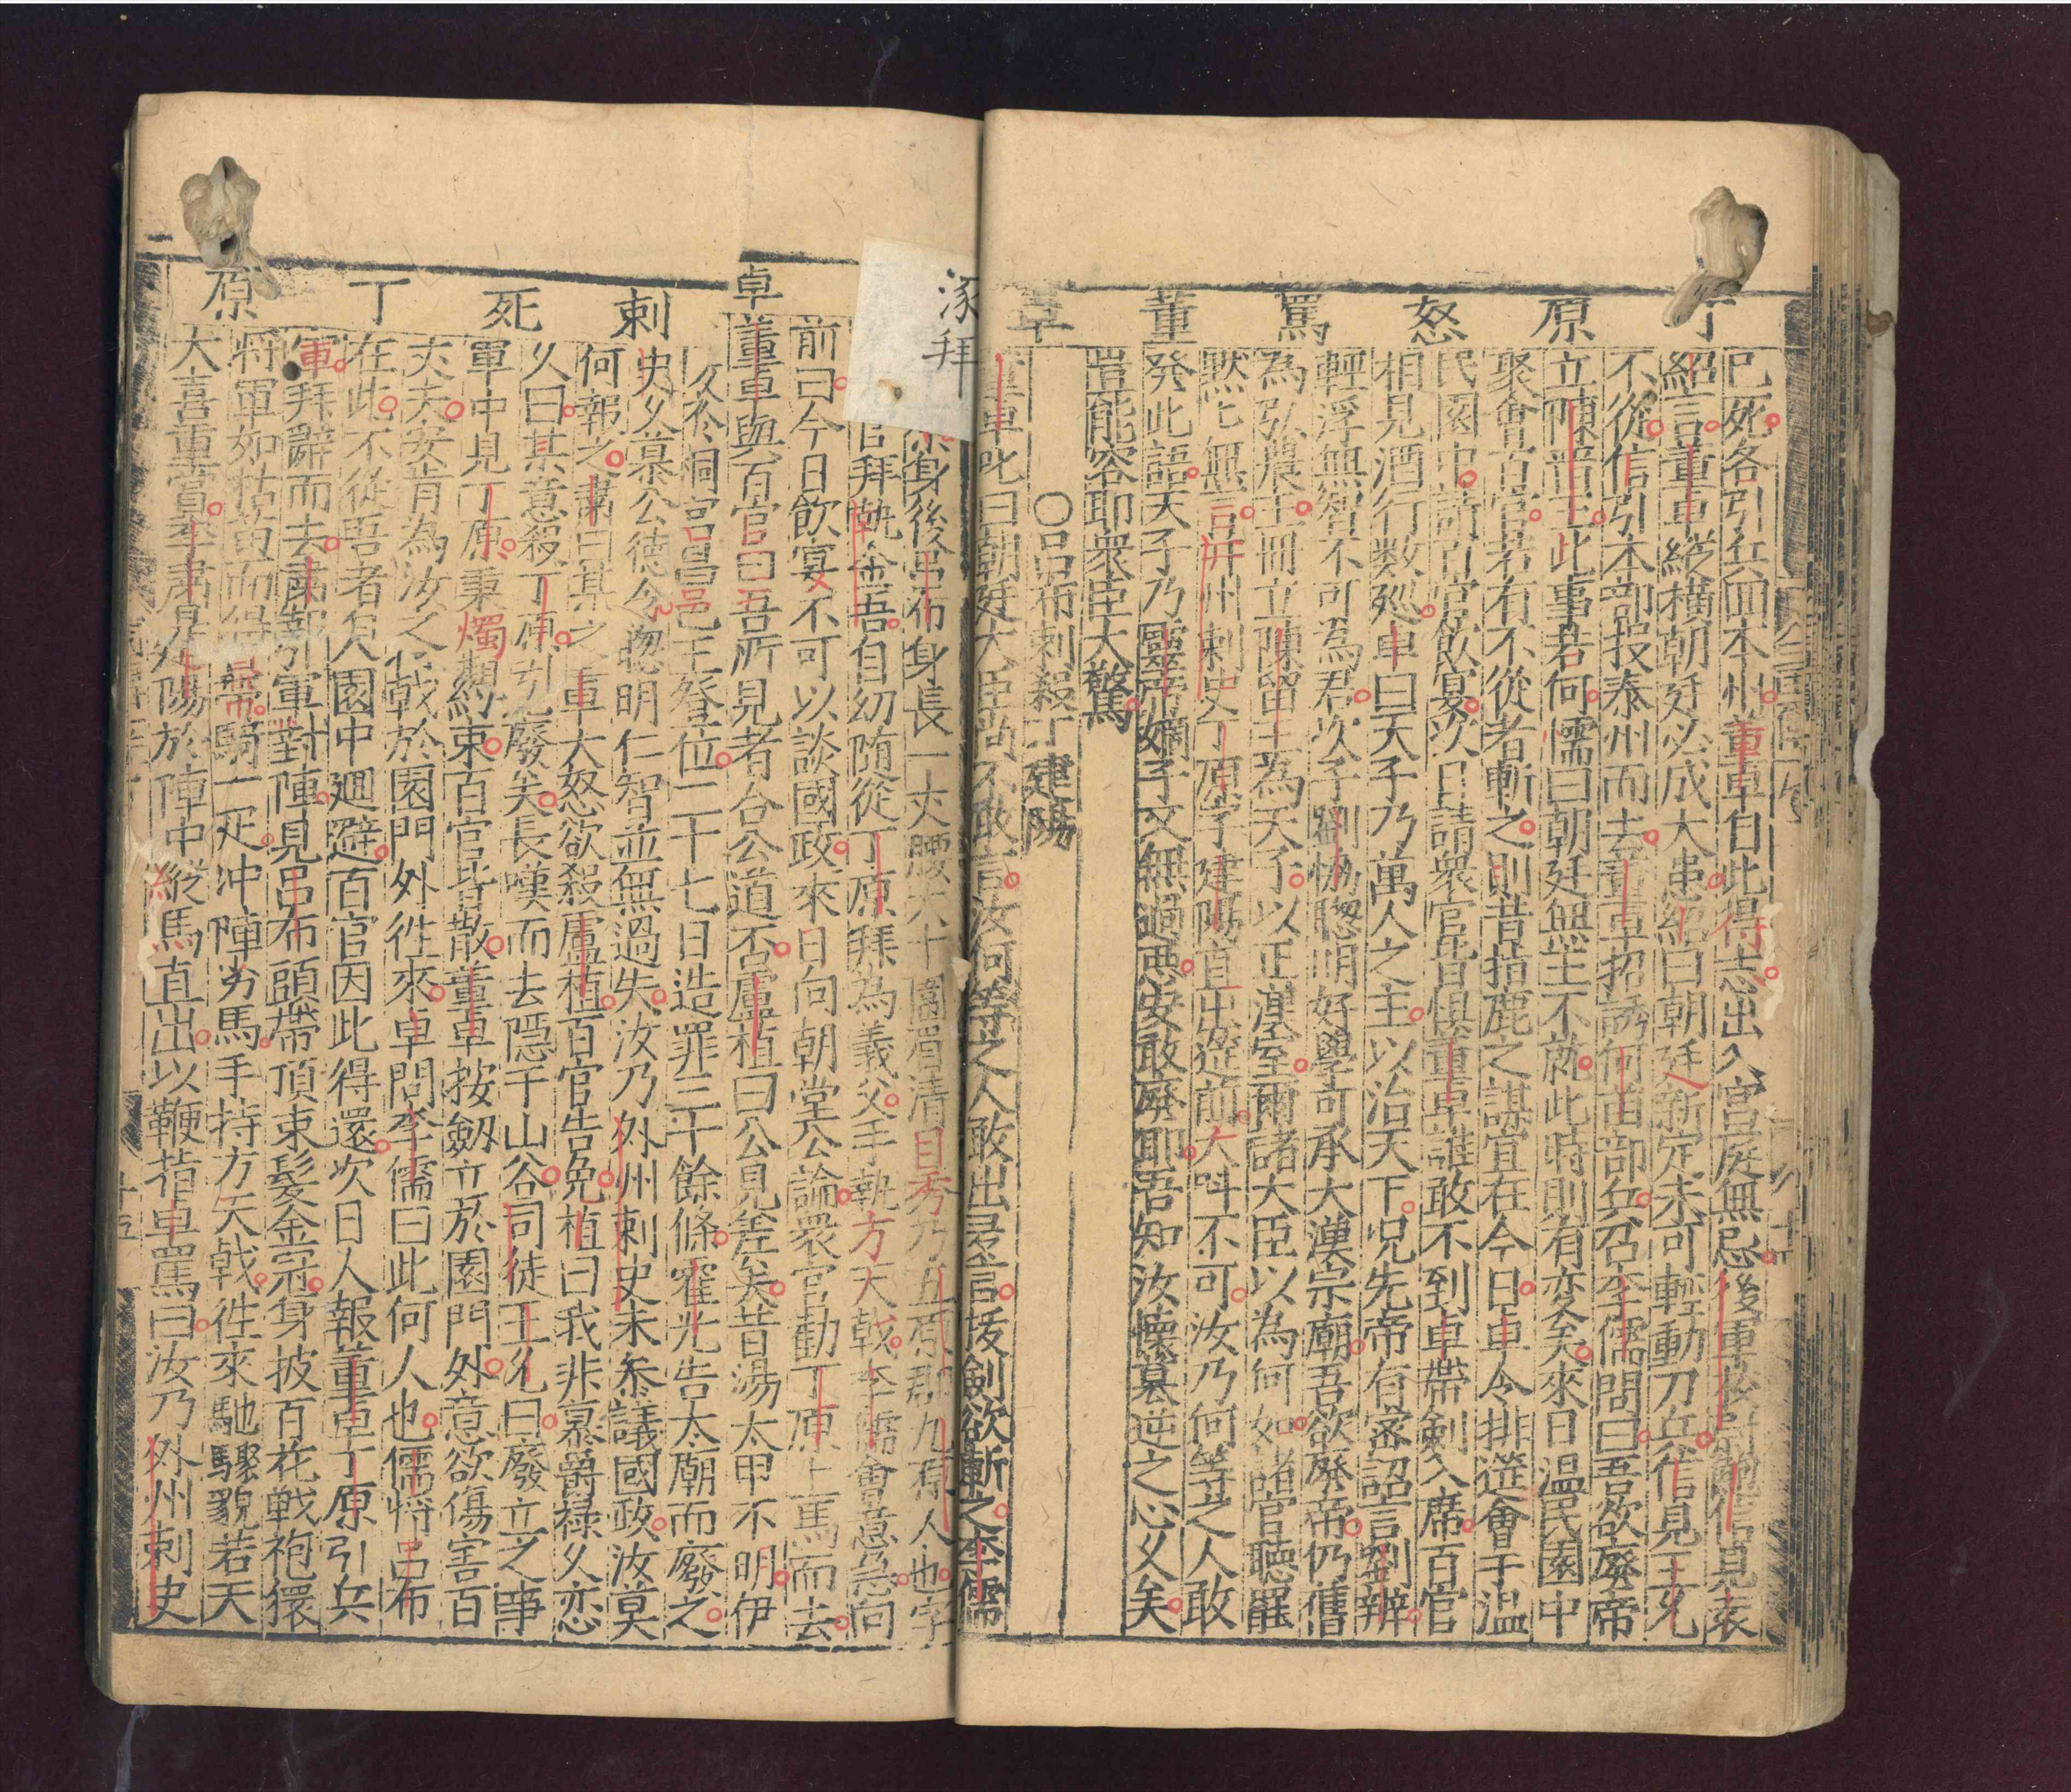 丁原怒罵董卓
已死各引兵回本州董卓自此得志出入宮庭無忌後軍校尉鮑信見袁
紹言董卓縱橫朝廷必成大患紹曰朝廷新定未可輕動刀兵信見王允
不從信引本部投泰州而去董卓招誘何苗部兵召李儒問曰吾欲廢帝
立陳留王此事若何儒曰朝廷無主不就此時則有変矣來日温民園中
聚會百官若有不從者斬之則昔指鹿之謀宜在今日卓令排筵會于温
民園中請百官飲宴次日請衆官皆惧董卓誰敢不到卓帶剣入席百官
相見酒行数廵卓曰天子乃萬人之主以治天下呪先帝有密詔言劉辨
輕浮無智不可為君次子劉協聰明好學可承大漢宗廟吾欲廢帝仍舊
為弘農王冊立陳留王為天子以正漢室爾諸大臣以為何如諸官聴罷
黙匕無言并州刺史丁原字建陽直出筵前大呌不可汝乃何等之人敢
発此語天子乃靈帝嫡子又無過悪安敢廢耶吾知汝懐篡逆之心久矣
豈能容耶衆臣大驚
○吕布刺殺丁建陽
董卓叱曰朝廷大臣尚不敢言汝何等之人敢出是言拔剣欲斬之李儒
涿拜
卓刺死丁原
身後吕布身長一丈腰大十圍眉清目秀乃五原郡九原人也字
官拜執金吾自幼随從丁原拜為義父手執方天戟李儒會意急向
前曰今日飲宴不可以談國政來日向朝堂公論衆官勸丁原上馬而去
董卓與百官曰吾所見者合公道否盧植曰公見差矣昔湯太甲不明伊
桐宮昌邑王登位二十七日造罪三十餘條霍光告太廟而廢之
史父慕公徳令聦明仁智並無過失汝乃外州刺史未參議國政汝莫
何報之肅曰某之卓大怒欲殺盧植百官告免植曰我非慕爵禄久恋
久曰某意殺丁原引廢矣長嘆而去隠于山谷司徒王允曰廢立之事
軍中見丁原秉燭期約束百官皆散董卓按劔立於園門外意欲傷害百
丈夫安肯為汝之戟於園門外徃來卓問李儒曰此何人也儒將吕布
在此不從吾者入園中廻避百官因此得還次日人報董卓丁原引兵
軍拜辭而去肅引軍對陣見吕布頭帶頂束髮金冠身披百花戦袍擐
將軍如帶騎一疋冲陣劣馬手持方天戟徃來馳驟貌若天
大喜重賞李肅見陽於陣中縱馬直出以鞭指卓罵曰汝乃外州刺史
十五